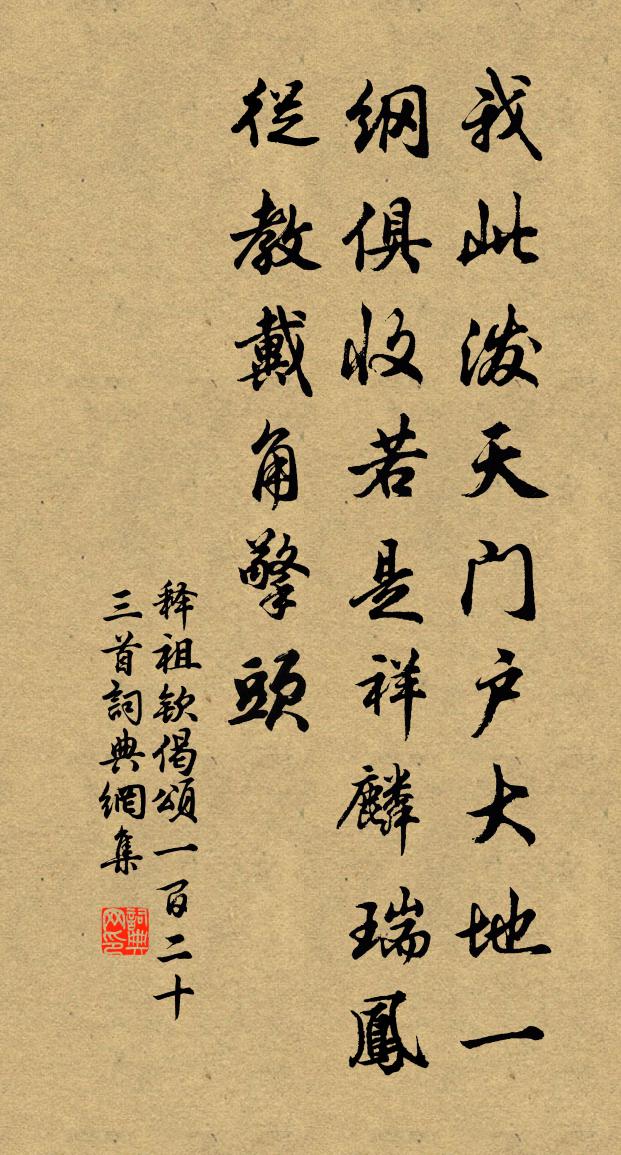 我此泼天门户大地一
纲俱收若是祥麟瑞鳳
從教戴角擎頭
释祖欽偈頌一百二十
三首詞典網集
詞典
网印